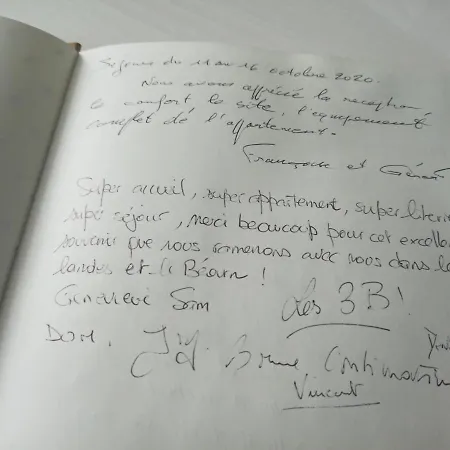 Séjour du 11 au 16 octobre 2020.
Nous avons apprécié la réception
le confort le site, l'équipement
complet de l'appartement.
Françoise et Gérar
Super accueil, super appartement, super literie
super séjour, merci beaucoup pour cet excellen
souvenir que nous ramenons avec nous dans le
landes et le Béarn !
Genevieve Sam Les 3B!
DOM. Bonne Continuation
Vincent